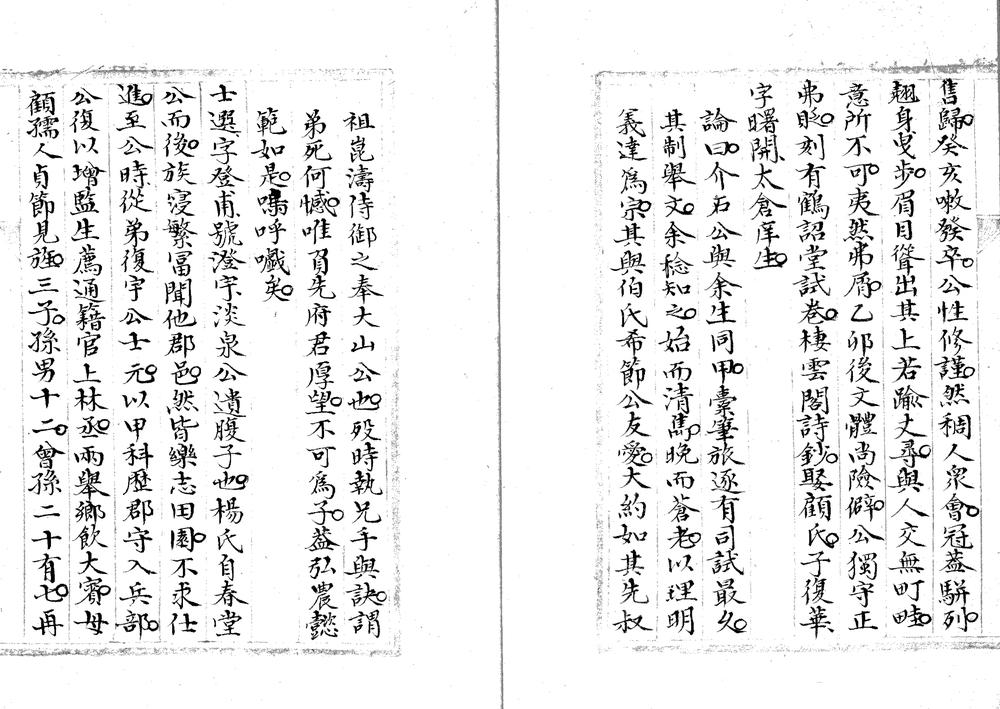 舊歸癸亥嗽發卒公性修謹然稠人衆會冠葢駢列
翹身曳步眉目聳出其上若踰丈尋與人交無町畦
意所不可夷然弗屑乙卯後文體尚險僻公獨守正
弗貶刻有鶴詔堂試卷棲雲閣詩鈔娶顧氏子復華
字曙開太倉庠生
論曰介石公與余生同甲橐筆旅逐有司試最久
其制舉文余稔知之始而清雋晚而蒼老以理明
義達爲宗其與伯氏希節公友愛大約如其先叔
祖崑濤侍御之奉大山公也歿時執兄手與訣謂
弟死何憾唯負先府君厚望不可爲子葢弘農懿
範如是嗚呼戲矣
士選字登甫號澄宇淡泉公遺腹子也楊氏自春堂
公而後族寖繁冨聞他郡邑然皆樂志田園不求仕
進至公時從弟復宇公士元以甲科歷郡守入兵部
公復以增監生薦通籍官上林丞兩舉鄉飲大賓母
顧孺人貞節見旌三子孫男十二曾孫二十有七再